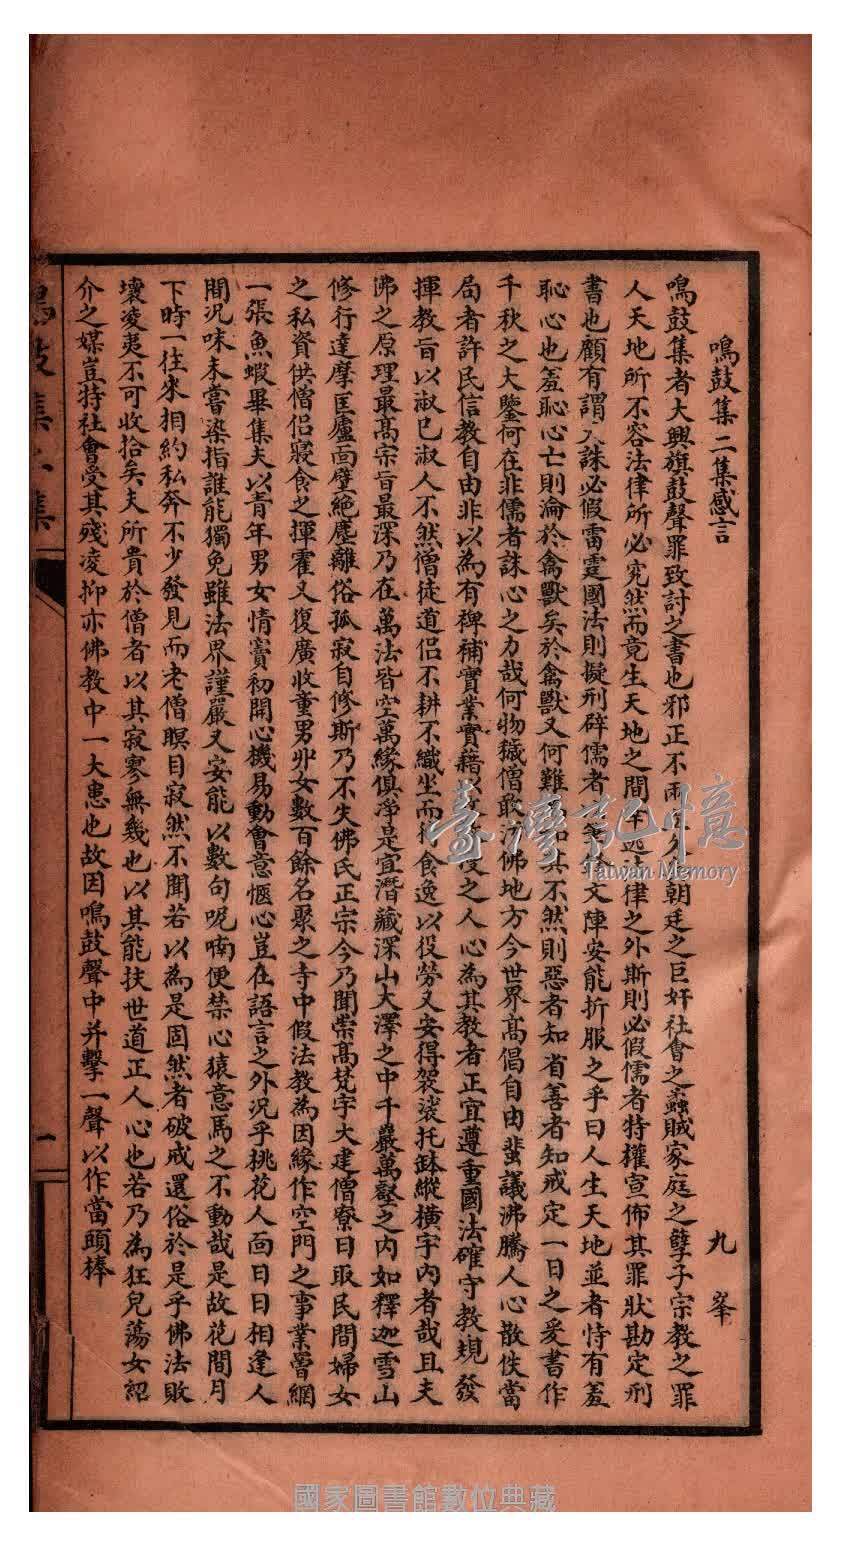 鳴鼓集二集感言
九峯
鳴鼓集者大興旗鼓聲罪致討之書也邪正不兩立久朝廷之巨奸社會之蟊賊家庭之孽子宗教之罪
人天地所不容法律所必究然而竟生天地之間逃法律之外斯則必假儒者特權宣佈其罪狀勘定刑
書也顧有謂天誅必假雷霆國法則擬刑辟儒者文陣安能折服之乎曰人生天地並者恃有羞
恥心也羞恥心亡則淪於禽獸矣於禽獸又何難其不然則惡者知省善者知戒定一日之爰書作
千秋之大鑒何在非儒者誅心之力哉何物穢僧敢汚佛地方今世界高倡自由蜚議沸騰人心散佚當
局者許民信教自由非以為有裨補實業實藉之人心為其教者正宜遵重國法確守教規發
揮教旨以淑己淑人不然僧徒道侶不耕不織坐而待食逸以役勞又安得袈裟托缽縱橫宇內者哉且夫
佛之原理最高宗旨最深乃在萬法皆空萬緣俱淨是宜潛藏深山大澤之中千巖萬壑之內如釋迦雪山
修行達摩匡廬面壁絶塵離俗孤寂自修斯乃不失佛氏正宗今乃聞崇高梵宇大建僧寮日取民間婦女
之私資供僧侶寢食之揮霍又復廣收童男丱女數百餘名聚之寺中假法教為因緣作空門之事業罾網
一張魚蝦畢集夫以青年男女情竇初開心機易動會意愜心豈在語言之外況乎桃花人面日日相逢人
間況味未嘗染指誰能獨免雖法界謹嚴又安能以數句呢喃便禁心猿意馬之不動哉是故花間月
下時一往來相約私奔不少發見而老僧瞑目寂然不聞若以為是固然者破戒還俗於是乎佛法敗
壞凌夷不可收拾矣夫所貴於僧者以其寂寥無幾也以其能扶世道正人心也若乃為狂兒蕩女紹
介之媒豈特社會受其殘凌抑亦佛教中一大患也故因鳴鼓聲中并擊一聲以作當頭棒
鳴鼓集二集
一
臺灣記憶
Taiwan Memory
國家圖書館數位典藏